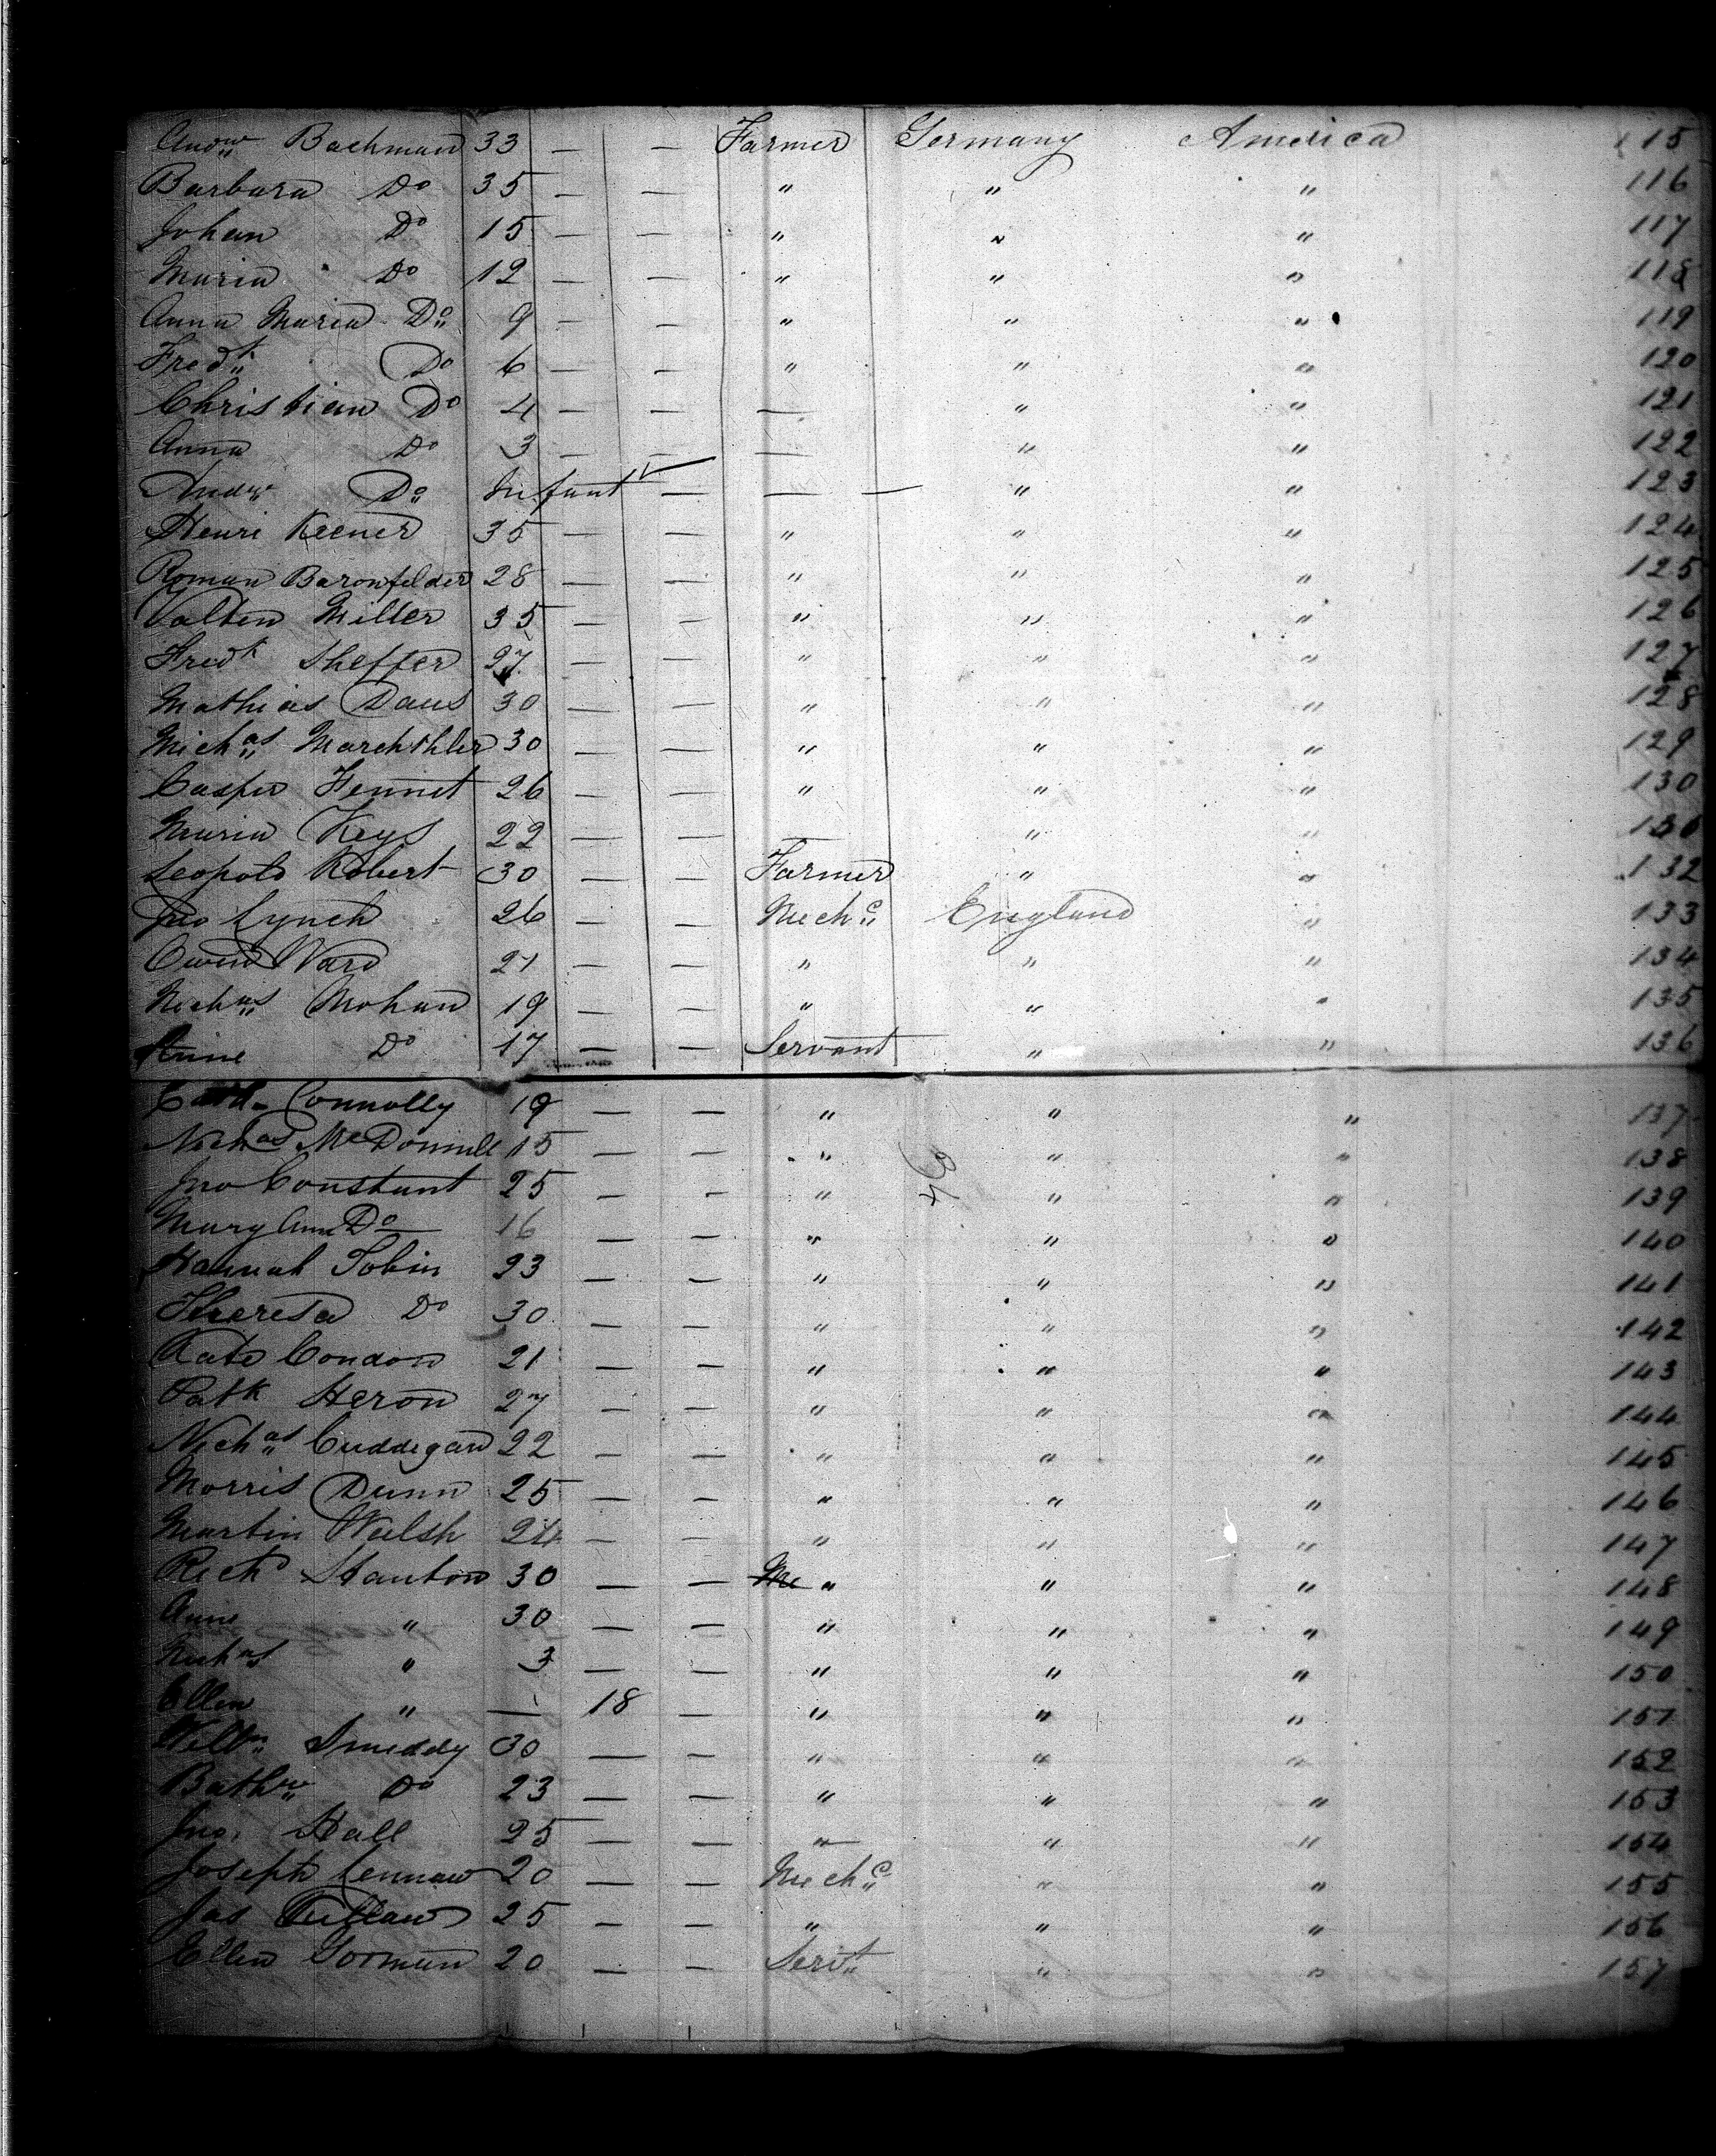 Andw Bachman 33 — — Farmer Germany America 115
Barbara Do 35 — — " " " 116
Johan Do 15 — — " " " 117
Maria Do 12 — — " " " 118
Anna Maria Do 9 — — " " " 119
Fredk Do 6 — — " " " 120
Christian Do 4 — — — " " 121
Anna Do 3 — — — " " 122
Andw Do Infant — — — " " 123
Henri Keener 35 — — " " " 124
Roman Baronfelder 28 — — " " " 125
Valten Miller 35 — — " " " 126
Fredk Sheffer 27 — — " " " 127
Mathias Daus 30 — — " " " 128
Michas Marchthler 30 — — " " " 129
Casper Fennet 26 — — " " " 130
Maria Keys 22 — — " "
Leopold Robert 30 — — Farmer " " 132
Jno Lynch 26 — — Mechc England " 133
Owen Ward 21 — — " " " 134
Michas Mohan 19 — — " " " 135
Anne Do 17 — — Servant " " 136
Connolly 19 — — " " " 137
Nichas McDonnell 15 — — " " " 138
Jno Constant 25 — — " " " 139
Mary Ann Do 16 — — " " " 140
Hannah Tobin 23 — — " " " 141
Theresa Do 30 — — " " " 142
Kate Condon 21 — — " " " 143
Patk Heron 27 — — " " " 144
Nichas Cuddegan 22 — — " " " 145
Morris Dunn 25 — — " " " 146
Martin Walsh 24 — — " " " 147
Richd Stanton 30 — — " " " 148
Anne " 30 — — " " " 149
Michas " 3 — — " " " 150
Ellen " — 18 — " " " 151
Willm Smiddy 30 — — " " " 152
Bathw Do 23 — — " " " 153
Jno. Hall 25 — — " " " 154
Joseph Lennaw 20 — — Mechc " " 155
Jas 25 — — " " " 156
Ellen Gorman 20 — — Servt " " 157